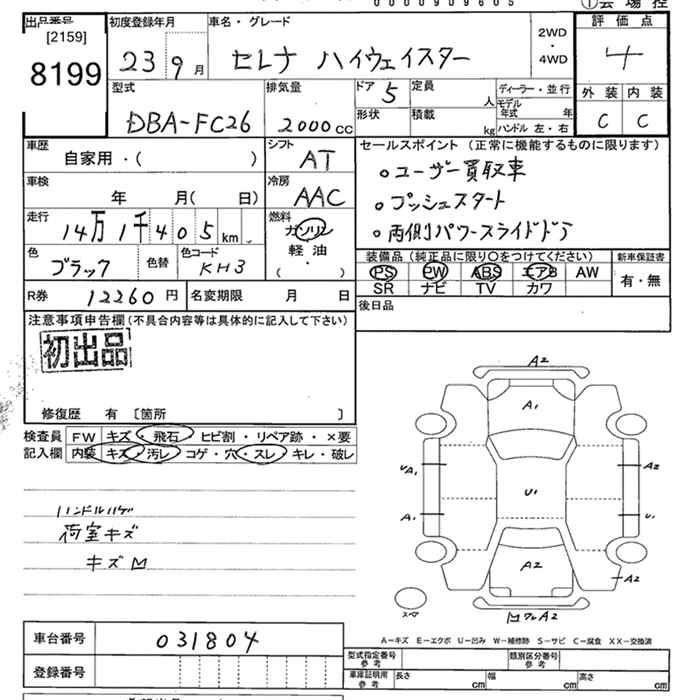 出品番号
[2159]
8199
初度登録年月
23 9月
車名・グレード
セレナ ハイウェイスター
2WD
・
4WD
評価点
4
外装 内装
C C
型式
DBA-FC26
排気量
2000cc
ドア 5
定員
人
形状
積載
kg
ディーラー・並行
モデル
年式 年
ハンドル 左・右
車歴
自家用・( )
シフト
AT
車検
年 月( 日)
冷房
AAC
走行
14万1千405km
燃料
ガソリン
軽油
( ・ )
色
ブラック
色替
色コード
KH3
R券 12260円
名変期限 月 日
セールスポイント (正常に機能するものに限ります)
○ユーザー買取車
○プッシュスタート
○両側パワースライドドア
装備品(純正品に限り○をつけてください)
PS PW ABS エアB AW
SR ナビ TV カワ
新車保証書
有・無
後日品
注意事項申告欄(不具合内容等は具体的に記入して下さい)
初出品
修復歴 有 〔箇所 〕
検査員
記入欄
FW キズ・飛石 ヒビ割・リペア跡・×要
内装 キズ・汚レ コゲ・穴・スレ キレ・破レ
ハンドルハゲ
荷室キズ
キズM
A2
A1
UA1
A2
U1
A1
U1
A2
A2
スペア
A2
A-キズ E-エクボ U-凹み W-補修跡 S-サビ C-腐食 XX-交換済
車台番号 031804
登録番号
型式指定番号
参考
類別区分番号
参考
車庫証明用
参考
長さ cm
幅 cm
高さ cm